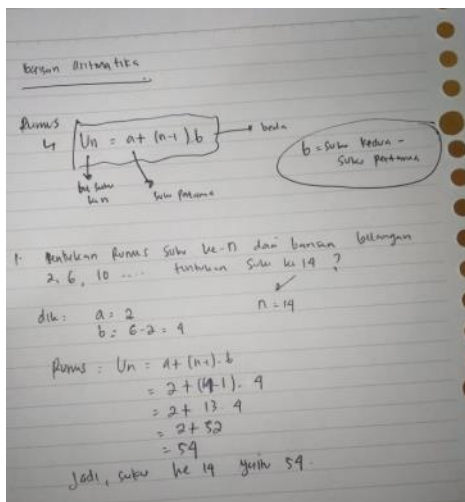 barisan aritmatika
Rumus
Un = a + (n-1).b
beda
suku pertama
b = suku kedua -
suku pertama
1. Tentukan Rumus suku ke-n dari barisan bilangan
2, 6, 10 .... tentukan suku ke 14 ?
n = 14
dik : a = 2
b = 6-2 = 4
Rumus : Un = a + (n-1).b
= 2 + (14-1). 4
= 2 + 13. 4
= 2 + 52
= 54
Jadi, suku ke 14 yaitu 54.